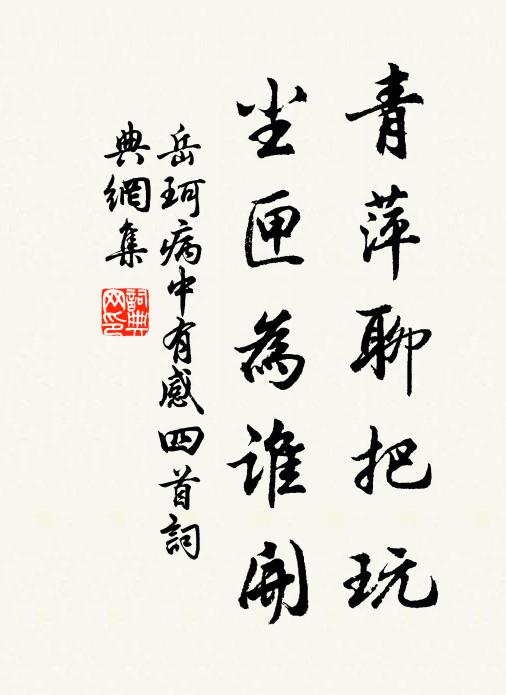 青萍聊把玩
尘匣為誰開
岳珂病中有感四首詞
典網集
詞典
网印